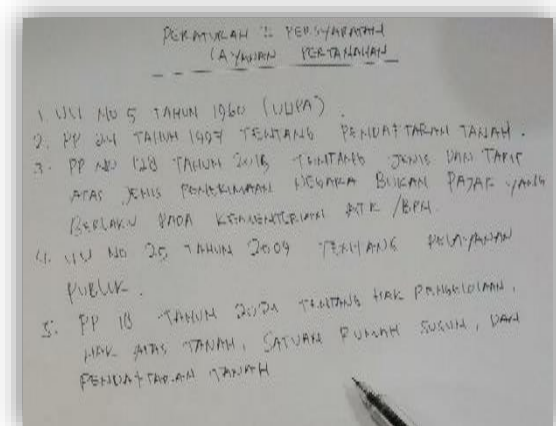 PERATURAN ² PERSYARATAN
LAYANAN PERTANAHAN
1 UU NO 5 TAHUN 1960 (UUPA).
2. PP 24 TAHUN 1997 TENTANG PENDAFTARAN TANAH.
3. PP NO 128 TAHUN 2015 TENTANG JENIS DAN TARIF
ATAS JENIS PENERIMAAN NEGARA BUKAN PAJAK YANG
BERLAKU PADA KEMENTERIAN ATR /BPN.
4. UU NO 25 TAHUN 2009 TENTANG PELAYANAN
PUBLIK.
5. PP 18 TAHUN 2021 TENTANG HAK PENGELOLAAN,
HAK ATAS TANAH, SATUAN RUMAH SUSUN, DAN
PENDAFTARAN TANAH